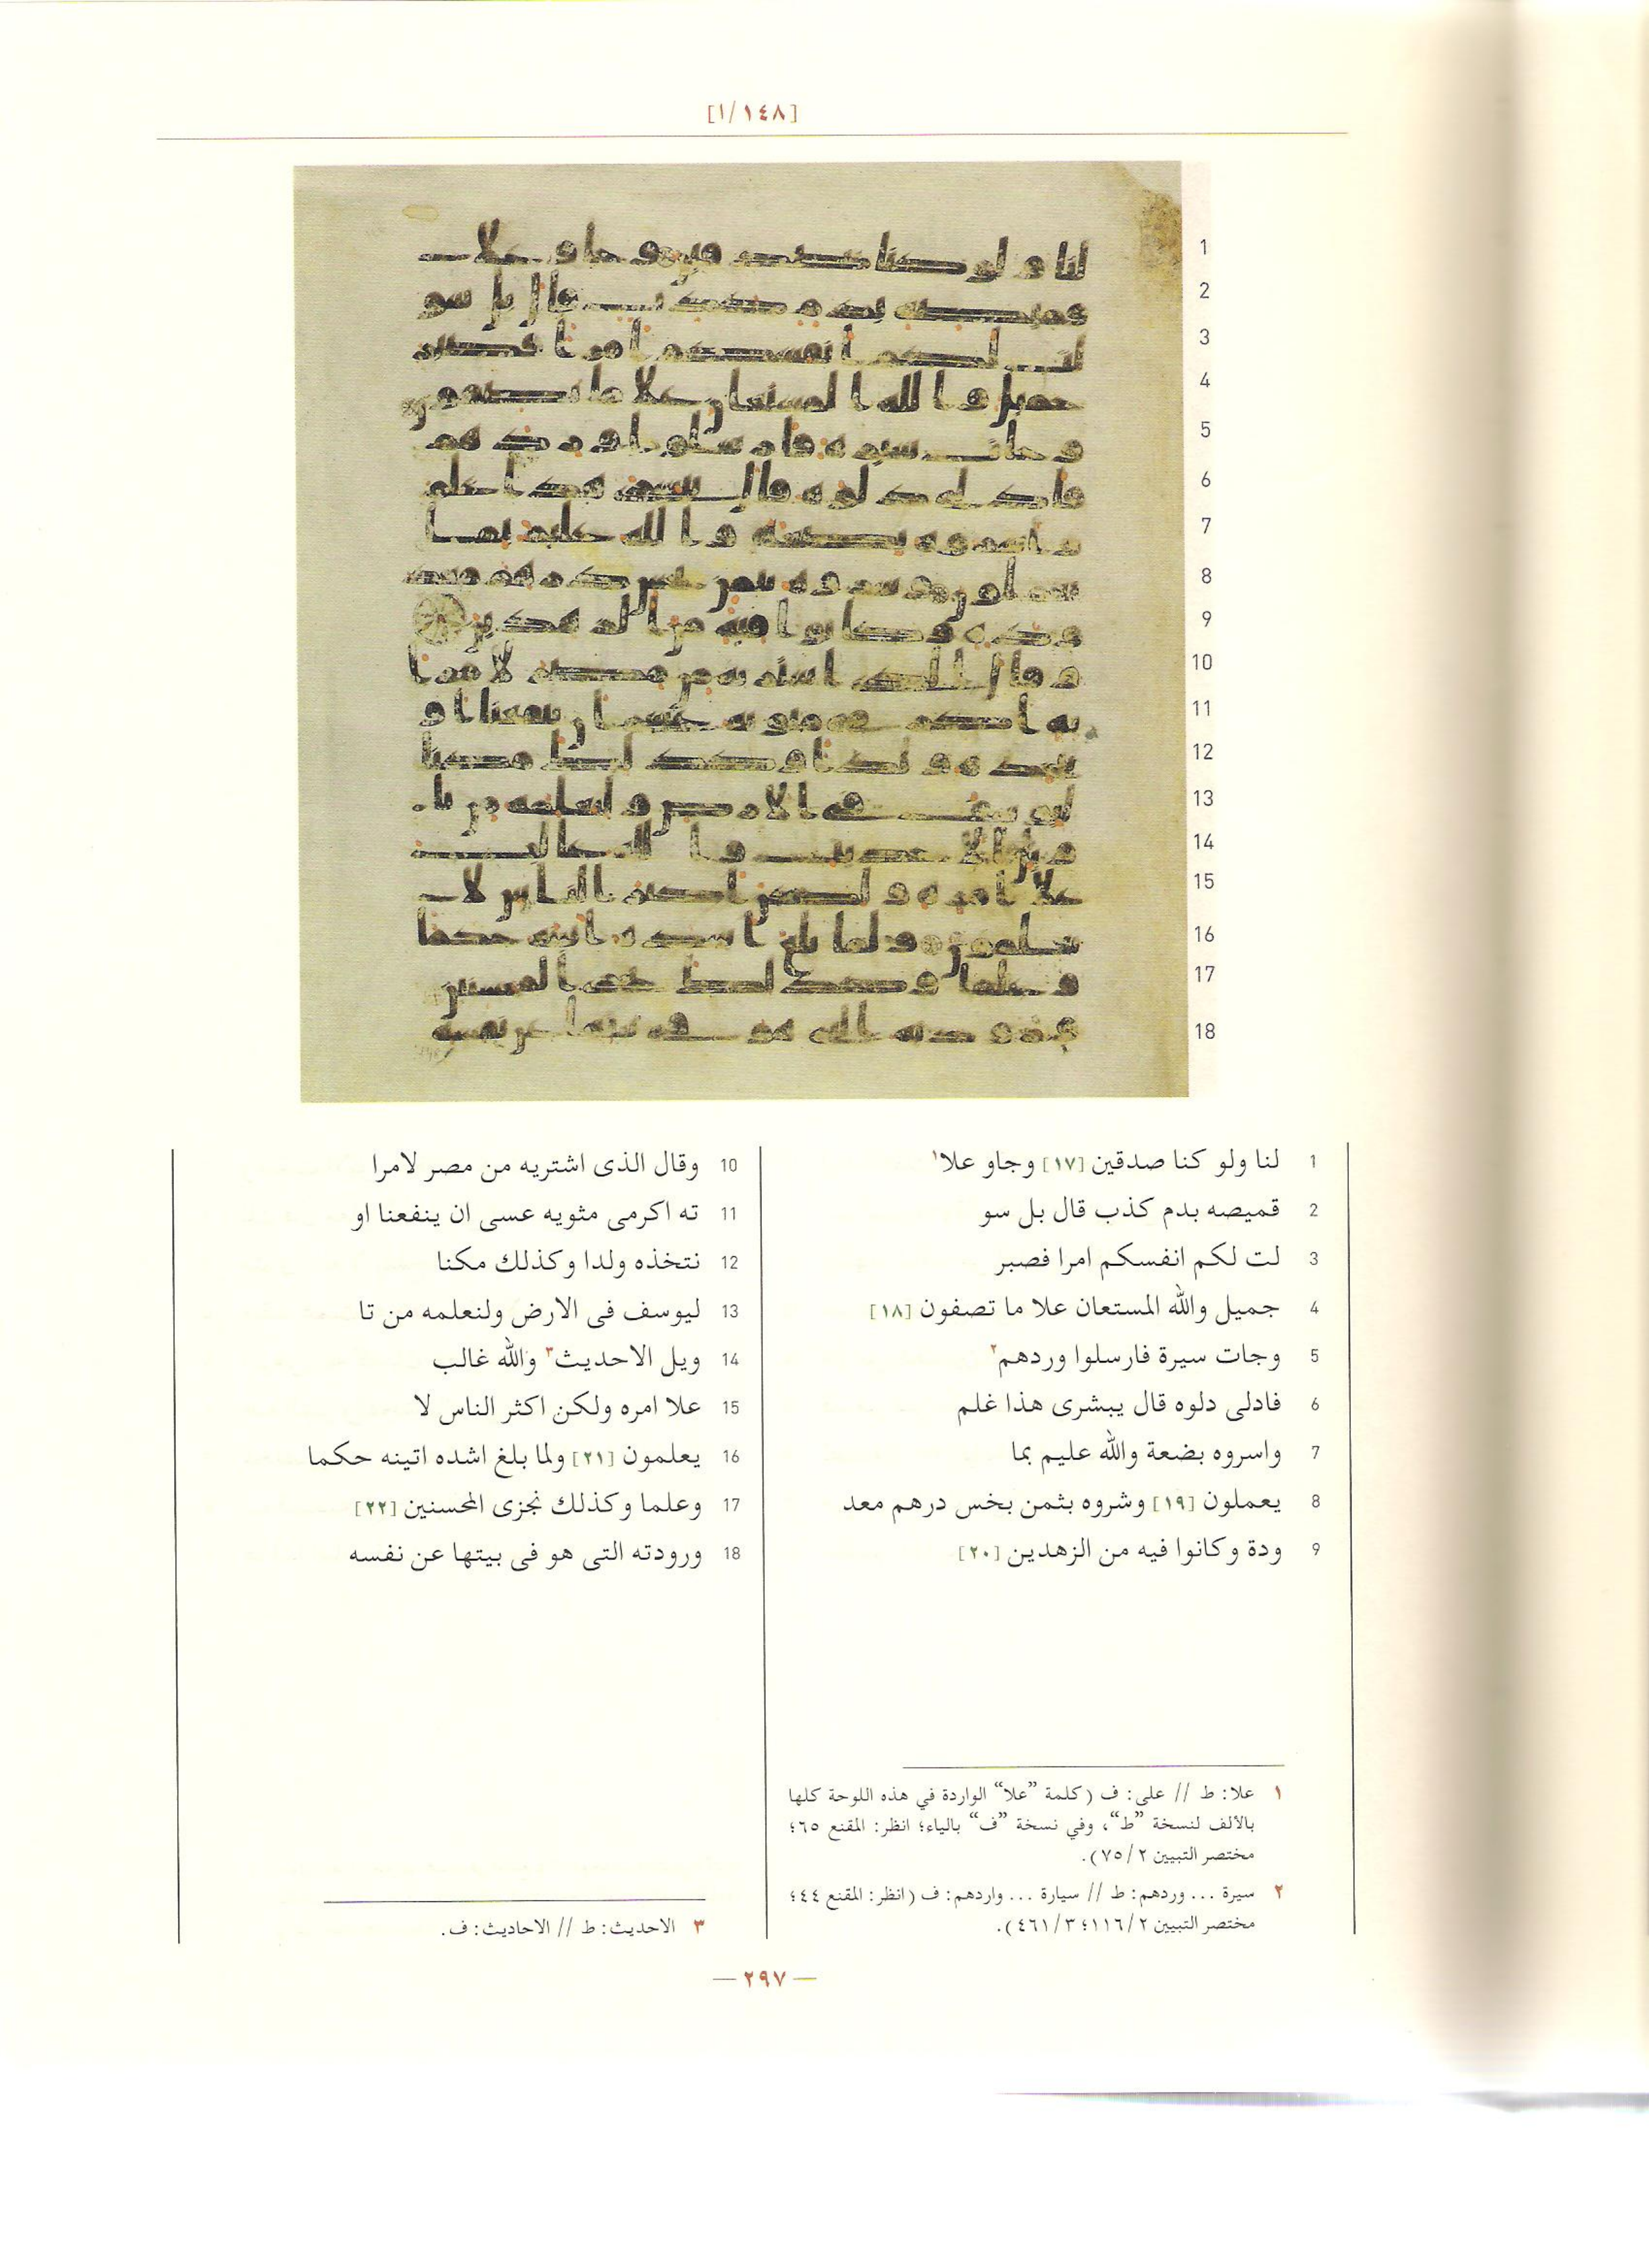 [١/١٤٨]
1 لنا ولو كنا صدقين [١٧] وجاو علا١
2 قميصه بدم كذب قال بل سو
3 لت لكم انفسكم امرا فصبر
4 جميل والله المستعان علا ما تصفون [١٨]
5 وجات سيرة فارسلوا وردهم٢
6 فادلى دلوه قال يبشرى هذا غلم
7 واسروه بضعة والله عليم بما
8 يعملون [١٩] وشروه بثمن بخس درهم معد
9 ودة وكانوا فيه من الزهدين [٢٠]
10 وقال الذى اشتريه من مصر لامرا
11 ته اكرمى مثويه عسى ان ينفعنا او
12 نتخذه ولدا وكذلك مكنا
13 ليوسف فى الارض ولنعلمه من تا
14 ويل الاحديث٣ والله غالب
15 علا امره ولكن اكثر الناس لا
16 يعلمون [٢١] ولما بلغ اشده اتينه حكما
17 وعلما وكذلك نجزى المحسنين [٢٢]
18 ورودته التى هو فى بيتها عن نفسه
١ علا: ط // على: ف (كلمة ”علا“ الواردة في هذه اللوحة كلها
بالألف لنسخة ”ط“، وفي نسخة ”ف“ بالياء؛ انظر: المقنع ٦٥؛
مختصر التبيين ٧٥/٢).
٢ سيرة ... وردهم: ط // سيارة ... واردهم: ف (انظر: المقنع ٤٤؛
مختصر التبيين ١١٦/٢؛ ٤٦١/٣).
٣ الاحديث: ط // الاحاديث: ف.
— ٢٩٧ —